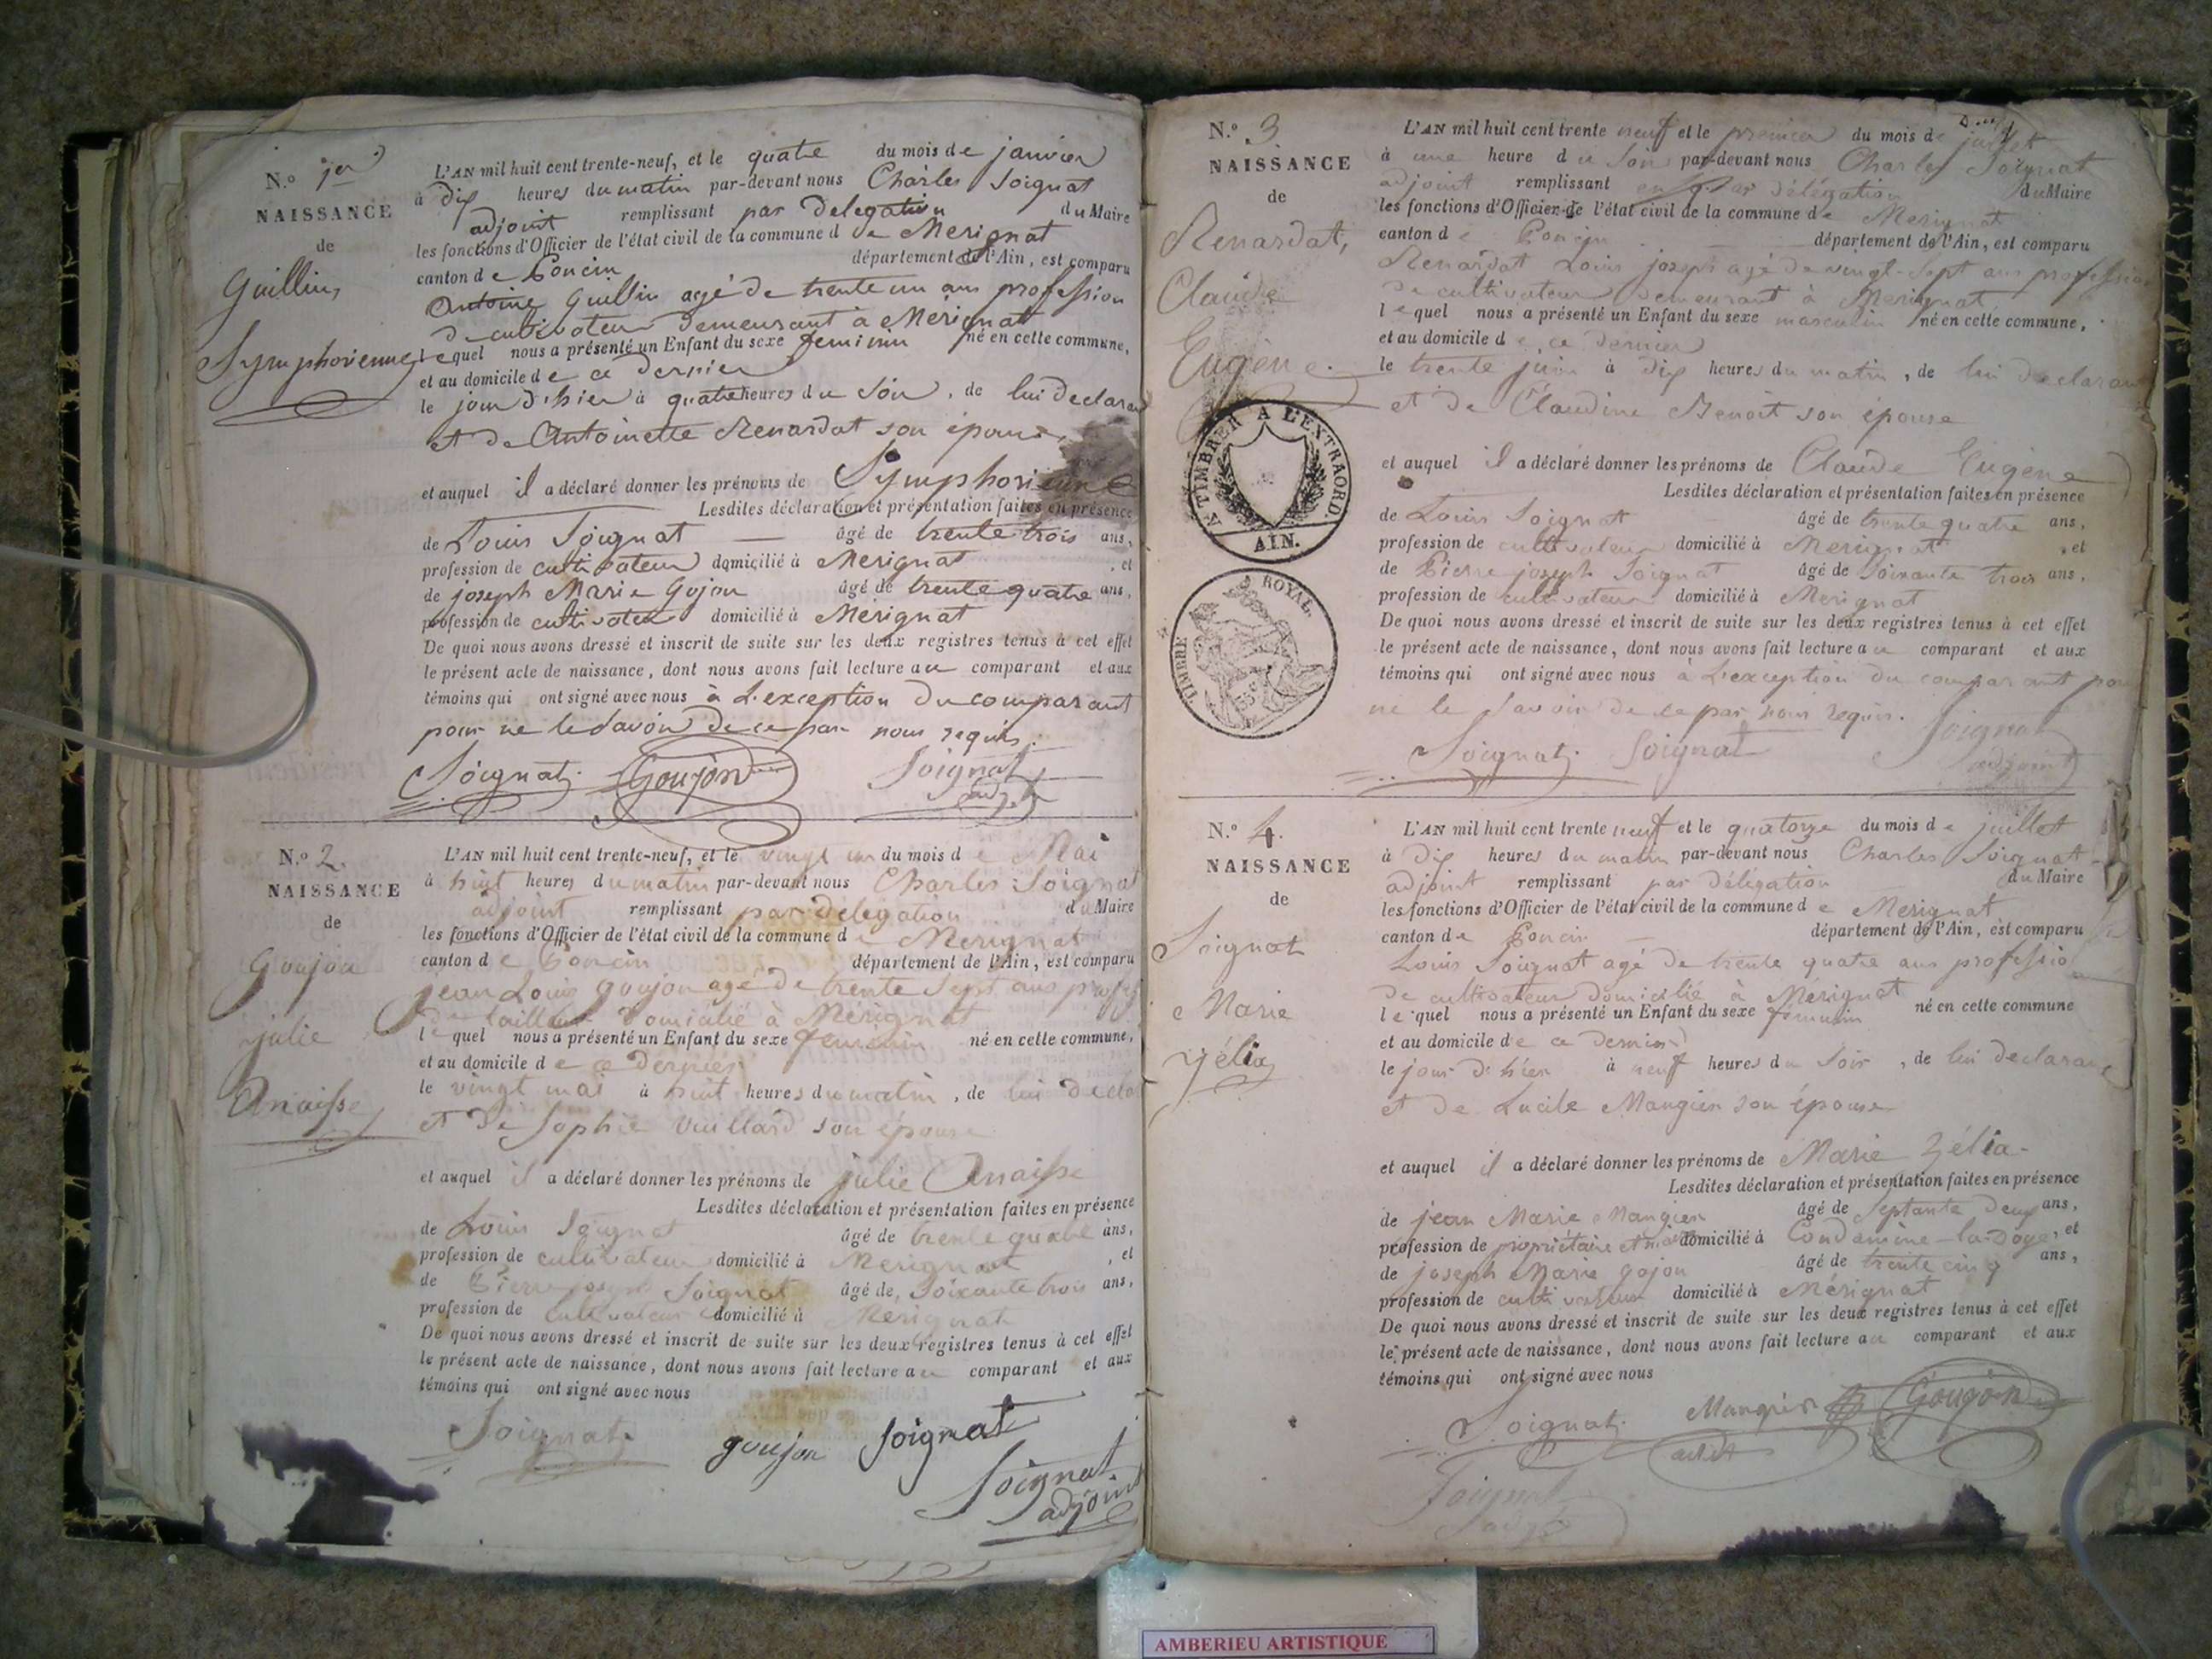 N.º 1er
NAISSANCE
de
Guillin,
Symphorienne
L'AN mil huit cent trente-neuf, et le quatre du mois de janvier
à dix heures du matin par-devant nous Charles Soignat
adjoint remplissant par délégation du Maire
les fonctions d'Officier de l'état civil de la commune d de Merignat
canton de Poncin département de l'Ain, est comparu
Antoine Guillin agé de trente un ans profession
de cultivateur demeurant à Mérignat
lequel nous a présenté un Enfant du sexe feminin né en cette commune,
et au domicile de ce dernier
le jour d'hier à quatre heures du soir, de lui déclarant
et de Antoinette Renardat son épouse,
et auquel il a déclaré donner les prénoms de Symphorienne
Lesdites déclaration et présentation faites en présence
de Louis Soignat âgé de trente trois ans,
profession de cultivateur domicilié à Merignat, et
de joseph Marie Gojon âgé de trente quatre ans,
profession de cultivateur domicilié à Mérignat
De quoi nous avons dressé et inscrit de suite sur les deux registres tenus à cet effet
le présent acte de naissance, dont nous avons fait lecture au comparant et aux
témoins qui ont signé avec nous à L'exception du comparant
pour ne le savoir de ce par nous requis.
Soignat Goujon Soignat
adjt
N.º 2.
NAISSANCE
de
Goujon
julie
Anaisse
L'AN mil huit cent trente-neuf, et le vingt un du mois de Mai
à huit heures du matin par-devant nous Charles Soignat
adjoint remplissant par délégation du Maire
les fonctions d'Officier de l'état civil de la commune de Merignat
canton de Poncin département de l'Ain, est comparu
jean Louis Goujon agé de trente sept ans
de tailleur domicilié à Mérignat
lequel nous a présenté un Enfant du sexe feminin né en cette commune,
et au domicile de ce dernier
le vingt mai à huit heures du matin, de lui
et de Sophie Vuillard son épouse
et auquel il a déclaré donner les prénoms de julie Anaisse
Lesdites déclaration et présentation faites en présence
de Louis Soignat âgé de trente quatre ans,
profession de cultivateur domicilié à Merignat, et
de Pierre joseph Soignat âgé de, Soixante trois ans,
profession de cultivateur domicilié à Merignat
De quoi nous avons dressé et inscrit de suite sur les deux registres tenus à cet effet
le présent acte de naissance, dont nous avons fait lecture au comparant et aux
témoins qui ont signé avec nous
Soignat goujon Soignat
Soignat
adjoint
N.º 3
NAISSANCE
de
Renardat,
Claude
Eugène.
A TIMBRER A L'EXTRAORD.
AIN.
TIMBRE ROYAL.
L'AN mil huit cent trente neuf et le premier du mois de juillet
à une heure du soir par-devant nous Charles Soignat
adjoint remplissant par délégation du Maire
les fonctions d'Officier de l'état civil de la commune de Merignat
canton de Poncin département de l'Ain, est comparu
Renardat Louis joseph agé de vingt-sept ans profession
de cultivateur demeurant à Merignat
lequel nous a présenté un Enfant du sexe masculin né en cette commune,
et au domicile de ce dernier
le trente juin à dix heures du matin, de lui declarant
et de Claudine Benoit son épouse
et auquel il a déclaré donner les prénoms de Claude Eugène
Lesdites déclaration et présentation faites en présence
de Louis Soignat âgé de trente quatre ans,
profession de cultivateur domicilié à Merignat, et
de Pierre joseph Soignat âgé de Soixante trois ans,
profession de cultivateur domicilié à Merignat
De quoi nous avons dressé et inscrit de suite sur les deux registres tenus à cet effet
le présent acte de naissance, dont nous avons fait lecture au comparant et aux
témoins qui ont signé avec nous à L'exception du comparant pour
ne le savoir de ce par nous requis. Soignat
Soignat Soignat adjoint
N.º 4.
NAISSANCE
de
Soignat
Marie
zélia
L'AN mil huit cent trente neuf et le quatorze du mois de juillet
à dix heures du matin par-devant nous Charles Soignat
adjoint remplissant par délégation du Maire
les fonctions d'Officier de l'état civil de la commune de Merignat
canton de Poncin département de l'Ain, est comparu
Louis Soignat agé de trente quatre ans professio
de cultivateur domicilié à Mérignat
lequel nous a présenté un Enfant du sexe feminin né en cette commune
et au domicile de ce dernier
le jour d'hier à neuf heures du soir, de lui declarant
et de Lucile Mangier son épouse
et auquel il a déclaré donner les prénoms de Marie Zélia
Lesdites déclaration et présentation faites en présence
de jean Marie Mangier âgé de septante deux ans,
profession de propriétaire et domicilié à Condamine-la-Doye, et
de joseph Marie Gojon âgé de trente cinq ans,
profession de cultivateur domicilié à Mérignat
De quoi nous avons dressé et inscrit de suite sur les deux registres tenus à cet effet
le présent acte de naissance, dont nous avons fait lecture au comparant et aux
témoins qui ont signé avec nous
Soignat Mangier Goujon
Soignat
AMBERIEU ARTISTIQUE